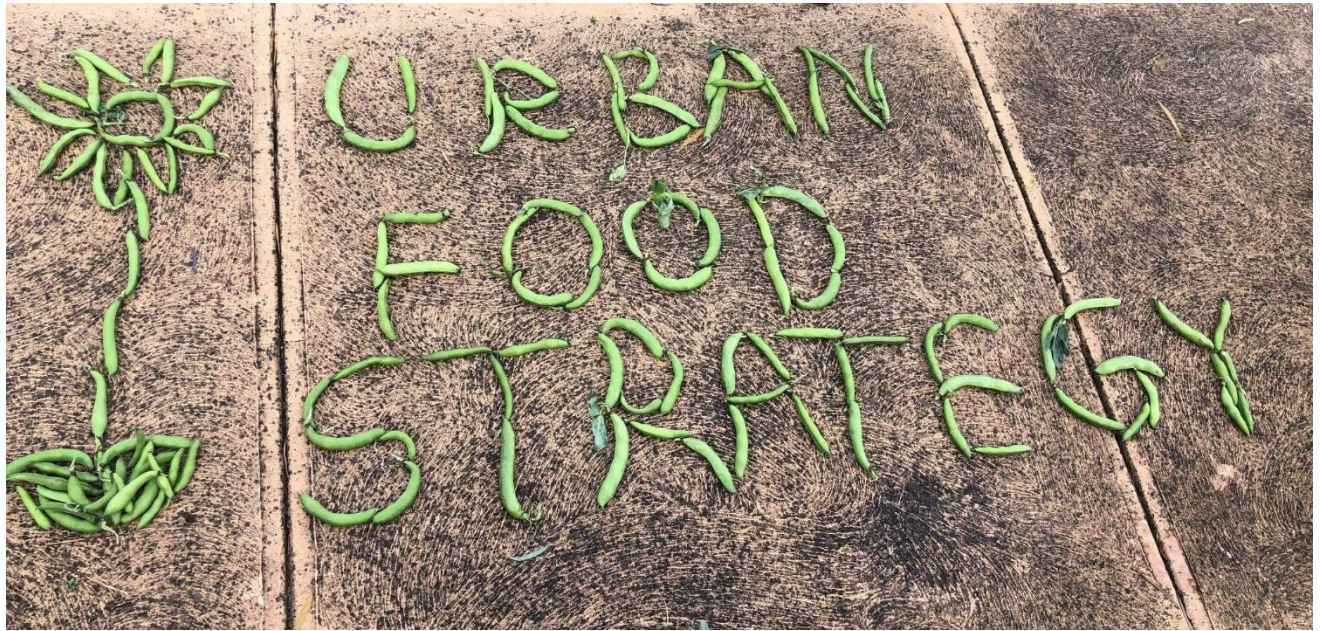 URBAN
FOOD
STRATEGY